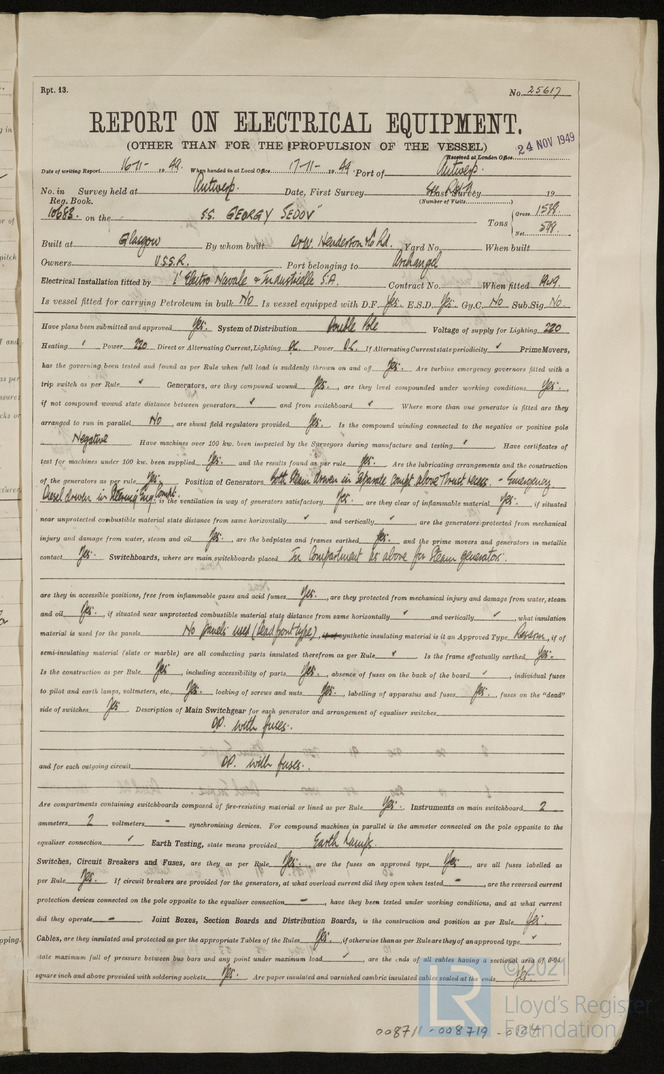 Rpt. 13.
No. 25617
REPORT ON ELECTRICAL EQUIPMENT.
(OTHER THAN FOR THE PROPULSION OF THE VESSEL)
24 NOV 1949
Received at London Office
Date of writing Report 16-11- 19 49. When handed in at Local Office 17-11- 19 49 Port of Antwerp
No. in Survey held at Antwerp. Date, First Survey Last Survey 19
Reg. Book. (Number of Visits)
10683. on the SS. GEORGY SEDOV Tons { Gross 1588 Net 578
Built at Glasgow By whom built D&W. Henderson & Co Ld. Yard No. When built
Owners U.S.S.R. Port belonging to Archangel
Electrical Installation fitted by L'Electro Navale & Industrielle S.A. Contract No. When fitted 1949.
Is vessel fitted for carrying Petroleum in bulk No Is vessel equipped with D.F. Yes. E.S.D. Yes. Gy.C. No Sub.Sig. No.
Have plans been submitted and approved Yes. System of Distribution Double Pole Voltage of supply for Lighting 220
Heating Power 220 Direct or Alternating Current, Lighting D.C. Power D.C. If Alternating Current state periodicity Prime Movers,
has the governing been tested and found as per Rule when full load is suddenly thrown on and off Yes. Are turbine emergency governors fitted with a
trip switch as per Rule Generators, are they compound wound Yes., are they level compounded under working conditions Yes.
if not compound wound state distance between generators and from switchboard Where more than one generator is fitted are they
arranged to run in parallel No are shunt field regulators provided Yes. Is the compound winding connected to the negative or positive pole
Negative Have machines over 100 kw. been inspected by the Surveyors during manufacture and testing Have certificates of
test for machines under 100 kw. been supplied Yes. and the results found as per rule Yes. Are the lubricating arrangements and the construction
of the generators as per rule Yes. Position of Generators Both Steam driven in separate compt above Thrust recess. - Emergency
Diesel driven in Steering Eng. Compt. is the ventilation in way of generators satisfactory Yes. are they clear of inflammable material Yes., if situated
near unprotected combustible material state distance from same horizontally and vertically are the generators protected from mechanical
injury and damage from water, steam and oil Yes. are the bedplates and frames earthed Yes. and the prime movers and generators in metallic
contact Yes. Switchboards, where are main switchboards placed In Compartment as above for Steam generator.
are they in accessible positions, free from inflammable gases and acid fumes Yes., are they protected from mechanical injury and damage from water, steam
and oil Yes., if situated near unprotected combustible material state distance from same horizontally and vertically, what insulation
material is used for the panels No panels used (Dead front type) synthetic insulating material is it an Approved Type, if of
semi-insulating material (slate or marble) are all conducting parts insulated therefrom as per Rule Is the frame effectually earthed Yes.
Is the construction as per Rule Yes., including accessibility of parts Yes., absence of fuses on the back of the board, individual fuses
to pilot and earth lamps, voltmeters, etc. Yes. locking of screws and nuts Yes. labelling of apparatus and fuses Yes., fuses on the "dead"
side of switches Yes Description of Main Switchgear for each generator and arrangement of equaliser switches
D.P. with fuses.
and for each outgoing circuit D.P. with fuses.
Are compartments containing switchboards composed of fire-resisting material or lined as per Rule Yes. Instruments on main switchboard 2
ammeters 2 voltmeters - synchronising devices. For compound machines in parallel is the ammeter connected on the pole opposite to the
equaliser connection Earth Testing, state means provided Earth Lamps.
Switches, Circuit Breakers and Fuses, are they as per Rule Yes. are the fuses an approved type Yes. are all fuses labelled as
per Rule Yes. If circuit breakers are provided for the generators, at what overload current did they open when tested -, are the reversed current
protection devices connected on the pole opposite to the equaliser connection -, have they been tested under working conditions, and at what current
did they operate - Joint Boxes, Section Boards and Distribution Boards, is the construction and position as per Rule Yes.
Cables, are they insulated and protected as per the appropriate Tables of the Rules Yes., if otherwise than as per Rule are they of an approved type
state maximum fall of pressure between bus bars and any point under maximum load, are the ends of all cables having a sectional area of 0·04
square inch and above provided with soldering sockets Yes. Are paper insulated and varnished cambric insulated cables sealed at the ends Yes.
008711-008719-0124
LR
© 2021
Lloyd's Register
Foundation